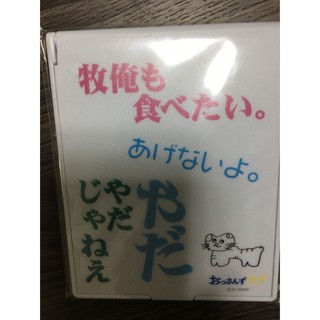 牧俺も
食べたい。
あげないよ。
やだ
やだ
じゃねえ
おっさんずラブ